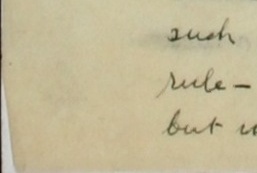 such
rule -
but